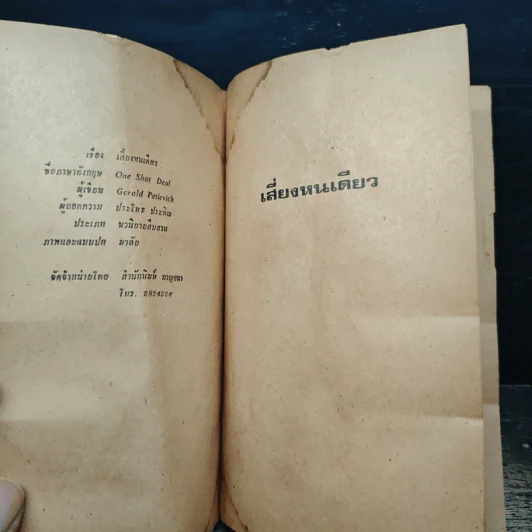 เรื่อง เสี่ยงหนเดียว
ชื่อภาษาอังกฤษ One Shot Deal
ผู้เขียน Gerald Petievich
ผู้ถอดความ ประไพธ ประพิณ
ประเภท นวนิยายสืบสวน
ภาพและแบบปก มาลัย
จัดจำหน่ายโดย สำนักพิมพ์
โทร.
เสี่ยงหนเดียว